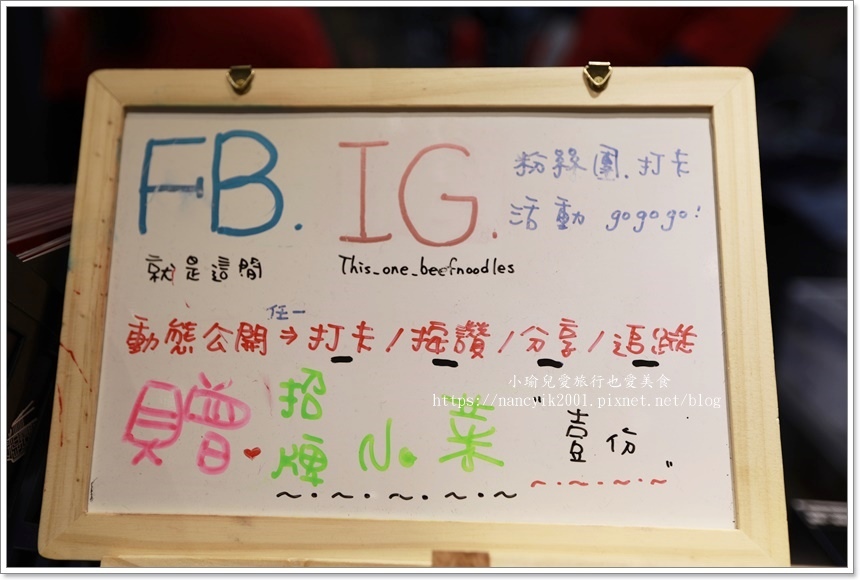 FB. IG. 粉絲團.打卡
活動 gogogo!
就是這間 This_one_beefnoodles
任一
動態公開→打卡/按讚/分享/追蹤
小瑜兒愛旅行也愛美食
https://nancylk2001.pixnet.net/blog
贈♥招牌小菜"壹份"